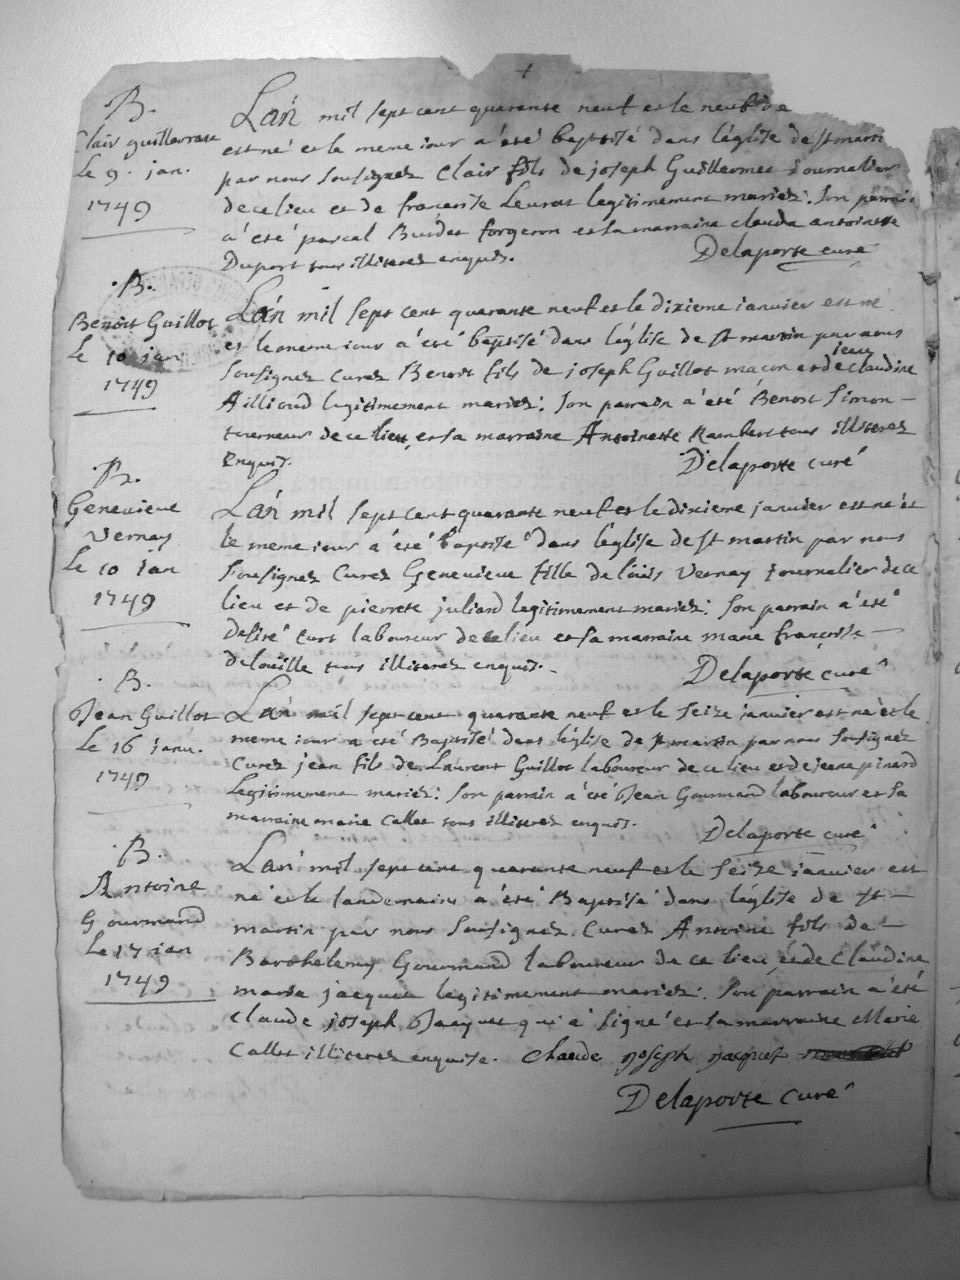 B.
Clair guillermet
Le 9. jan.
1749
Lan mil sept cent quarante neuf et le neuf de
est né et le meme iour a été baptisé dans léglise de st marti
par nous sousignez Clair fils de joseph Guillermet Journalier
de ce lieu et de francoise Leurat legitimement mariez: Son parrai
a été pascal Burdet forgeron et sa marraine clauda antoinette
Duport tous illiterez enquis.
Delaporte curé
B.
Benoit Guillot
Le 10 jan
1749
Lan mil sept cent quarante neuf et le dixieme ianvier est ne
et le meme iour a été baptisé dans léglise de st martin par nous
sousignez Curez Benoit fils de joseph Guillot macon et de jean claudine
Aillioud legitimement mariez: son parrain a été Benoit Simon
tourneur de ce lieu et sa marraine Antoinette Rambert tous illiterez
Enquis.
Delaporte curé
B.
Genevieve
Vernay
Le 10 Jan
1749
Lan mil sept cent quarante neuf et le dixieme janvier est né et
le meme iour a été baptisé dans léglise de st martin par nous
sousignez Curez Genevieve fille de loüis Vernay Journalier de ce
lieu et de pierrete juliard legitimement mariez: Son parrain a été
Desiré curt laboureur de ce lieu et sa marraine marie francoise
delouille tous illiterez enquis.
Delaporte curé
B.
Jean Guillot
Le 16 janv.
1749
Lan mil sept cent quarante neuf et le seize janvier est né et le
meme iour a été Baptisé dans léglise de st martin par nous sousignez
Curez jean fils de Laurent Guillot laboureur de ce lieu et de jeane pinard
Legitimement mariez: son parrain a été Jean Gourmand laboureur et sa
marraine marie Callet tous illiterez enquis.
Delaporte curé
B.
Antoine
Gourmand
Le 17 jan
1749
Lan mil sept cent quarante neuf et le seize ianvier est
né et le landemain a été Baptisé dans léglise de st
martin par nous sousignez Curez Antoine fils de
Barthelemy Gourmand laboureur de ce lieu et de Claudine
marie jacquet legitimement mariez: Son parrain a été
Claude joseph Jacquet qui a signé et sa marraine Marie
Callet illiterez enquise. Claude Joseph Jacquet
Delaporte curé